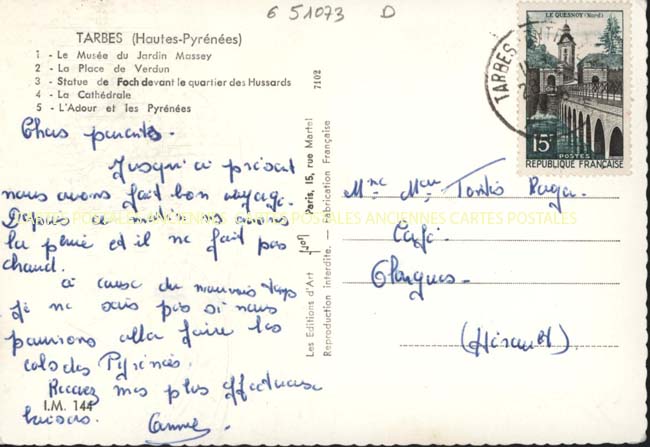 6 51073 D
TARBES (Hautes-Pyrénées)
1 - Le Musée du Jardin Massey
2 - La Place de Verdun
3 - Statue de Foch devant le quartier des Hussards
4 - La Cathédrale
5 - L'Adour et les Pyrénées
Chers parents.
Jusqu'à présent
nous avons fait bon voyage.
Depuis ce matin ns avons
la pluie et il ne fait pas
chaud.
à cause du mauvais temps
je ne sais pas si nous
pourrons aller faire les
cols des Pyrénées.
Recevez mes plus affectueux
baisers.
I.M. 144
Les Editions d'Art Paris, 15, rue Martel
Reproduction interdite. — Fabrication Française
7102
LE QUESNOY (Nord)
15F
POSTES
REPUBLIQUE FRANÇAISE
TARBES
Café
Olargues
(Hérault)
CARTES POSTALES ANCIENNES CARTES POSTALES ANCIENNES CARTES POSTALES